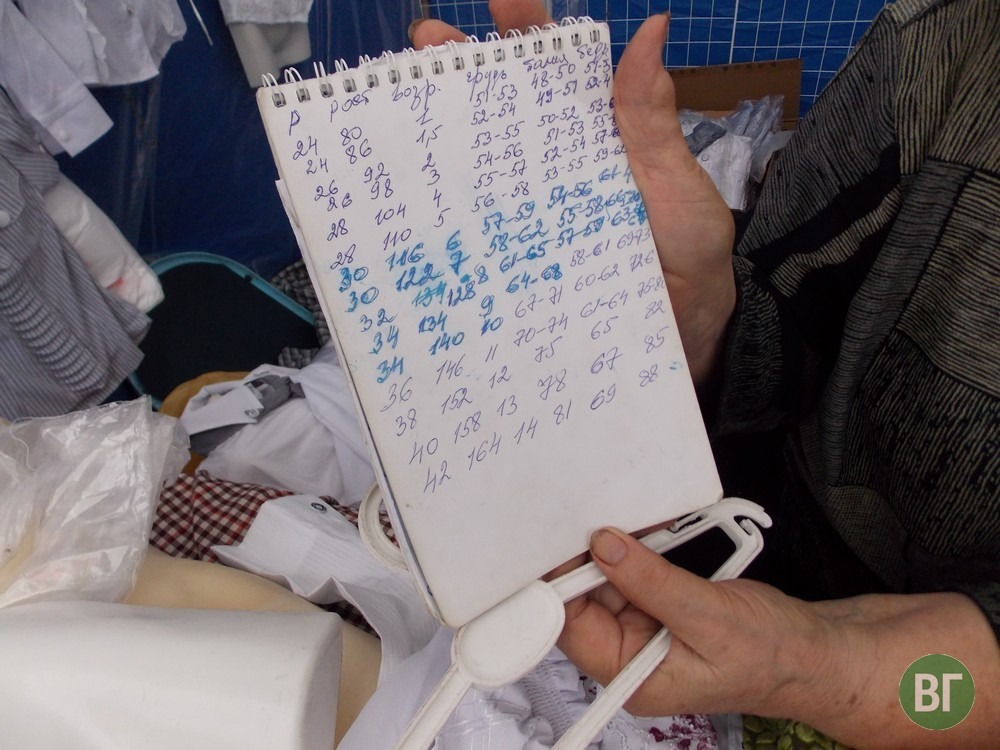 р рост возр. грудь талия бедр
24 80 1 51-53 48-50 51-5
24 86 1,5 52-54 49-51 52-4
26 92 2 53-55 50-52 53-
28 98 3 54-56 51-53 55-
28 104 4 55-57 52-54 57-
28 110 5 56-58 53-55 59-62
30 116 6 57-59 54-56 61-
30 122 7 58-62 55-58
32 128 8 61-65 57-59 63-
34 134 9 64-68 58-61 6973
34 140 10 67-71 60-62 726
36 146 11 70-74 61-64 75-80
38 152 12 75 65 82
40 158 13 78 67 85
42 164 14 81 69 88
ВГ